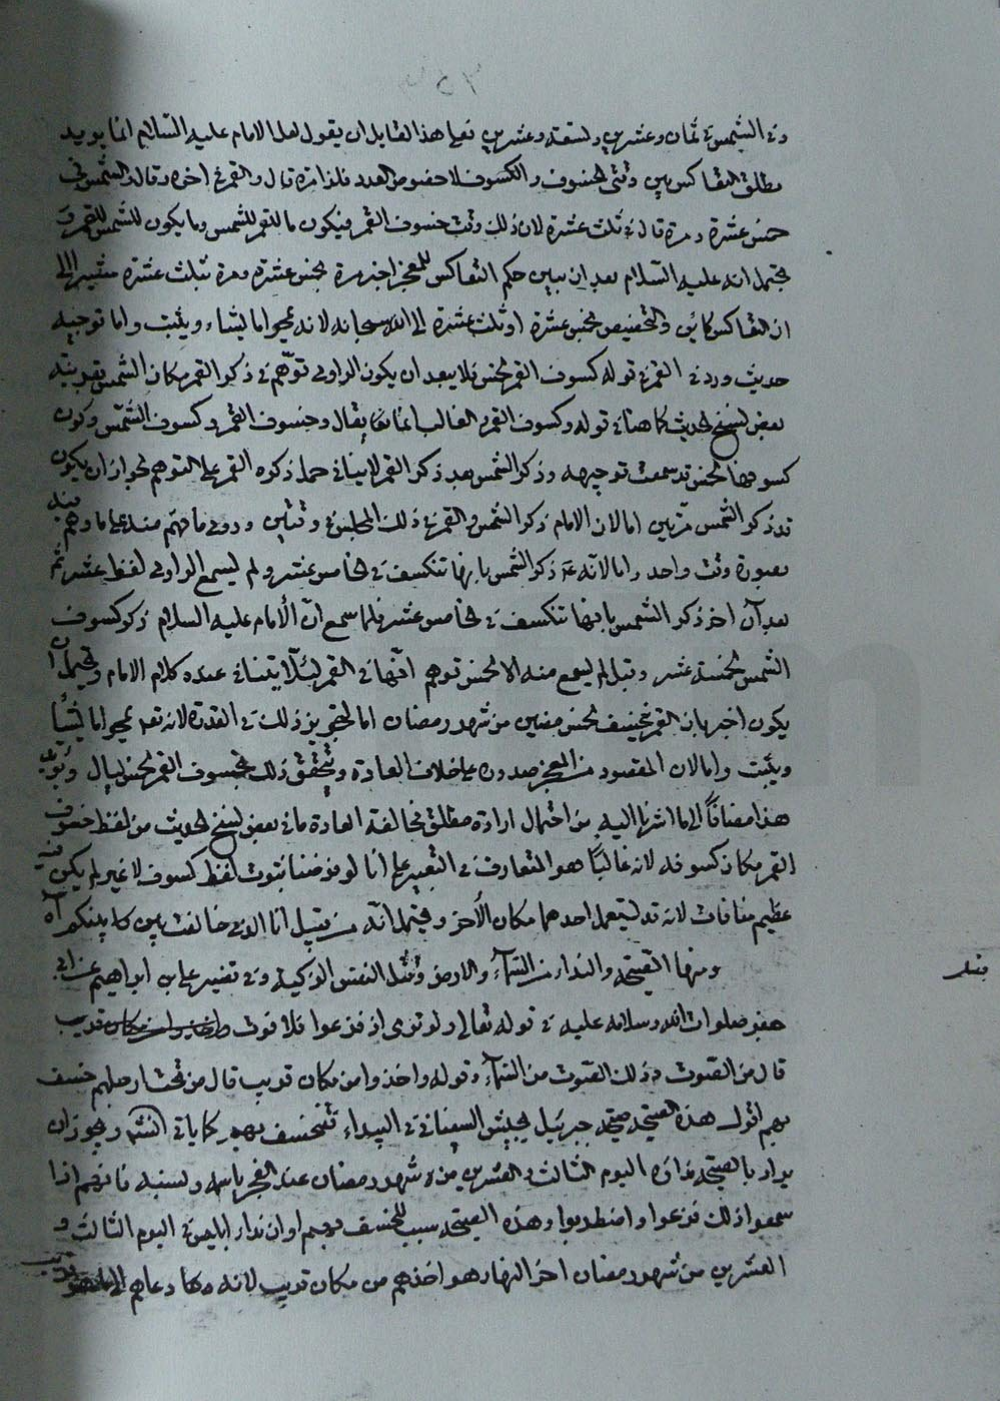 وفي الشمس في ثمان وعشرين وتسعة وعشرين فعلى هذا القائل ان يقول لعل الامام عليه السلام انما يريد
مطلق التعاكس بين وقتي الخسوف والكسوف لا خصوص العدد فلذا مرة قال والقمر في اخره وقال والشمس في
خمس عشرة ومرة قال في ثلث عشرة لان ذلك وقت خسوف القمر فيكون ما للقمر للشمس وما يكون للشمس للقمر و
يحتمل انه عليه السلام بعد ان بين حكم التعاكس للمعجز اخبر مرة بخمس عشرة ومرة بثلث عشرة مشيرا الى
ان التعاكس كائن والتخصيص بخمس عشرة او ثلث عشرة الى الله سبحانه لانه يمحو ما يشاء ويثبت واما توجيه
حديث ورد في القمر في قوله كسوف القمر لخمس فلا يبعد ان يكون الراوي توهم في ذكر القمر مكان الشمس بقرينة
بعض نسخ الحديث كما هنا في قوله وكسوف القمر و الغالب انما يقال وخسوف القمر وكسوف الشمس وكون
كسوفها لخمس قد سمعت توجيهه وذكر الشمس بعد ذكر القمر لا ينافي حمل ذكره القمر على التوهم لجواز ان يكون
قد ذكر الشمس مرتين اما لان الامام ذكر الشمس والقمر في ذلك المجلس في وقتين وروي ما فهم منه على ما وهم فيه
بصورة وقت واحد واما لانه ذكر الشمس بانها تنكسف في الخامس عشر ولم يسمع الراوي لفظ عشر ثم
بعد ان اخر ذكر الشمس بانها تنكسف في الخامس عشر فلما سمع ان الامام عليه السلام ذكر كسوف
الشمس لخمسة عشر وقبل لم يسمع منه الا لخمس توهم انها في القمر لئلا يتنافى عنده كلام الامام ويحتمل ان
يكون اخبر بان القمر يخسف لخمس مضين من شهر رمضان اما لتجويز ذلك في القدرة لانه تعالى يمحو ما يشاء
ويثبت واما لان المقصود من المعجز صدوره على خلاف العادة ويتحقق ذلك بخسوف القمر لخمس ليال ويؤيد
هذا مضافاً الى ما اشرنا اليه من احتمال ارادة مطلق مخالفة العادة ما في بعض نسخ الحديث من لفظ خسوف
القمر مكان كسوفه لانه غالباً هو المتعارف في التعبير على انا لو فرضنا ثبوت لفظ كسوف لا غير لم يكن فيه
عظيم منافات لانه قد يستعمل احدهما مكان الاخر ويحتمل انه من قبيل انا الذي خالفت بين كلا
ومنها الصيحة والنداء من السماء والارض وقتل النفس الزكية وفي تفسير علي بن ابراهيم عن ابي
جعفر صلوات الله وسلامه عليه في قوله تعالى ولو ترى اذ فزعوا فلا فوت واخذوا من مكان قريب
قال من الصوت وذلك الصوت من السماء وقوله واخذوا من مكان قريب قال من تحت ارجلهم خسف
بهم اقول هذه الصيحة صيحة جبرئيل بجيش السفياني في البيداء فتنخسف بهم كما ياتي انشاء الله ويجوز ان
يراد بالصيحة نداؤه اليوم الثالث والعشرين من شهر رمضان عند الفجر باسمه ونسبه فانهم اذا
سمعوا ذلك فزعوا واضطربوا وهذه الصيحة سبب للخسف بهم او ان نداء ابليس في اليوم الثالث و
العشرين من شهر رمضان اخر النهار هو اخذهم من مكان قريب لانه دعاهم الى